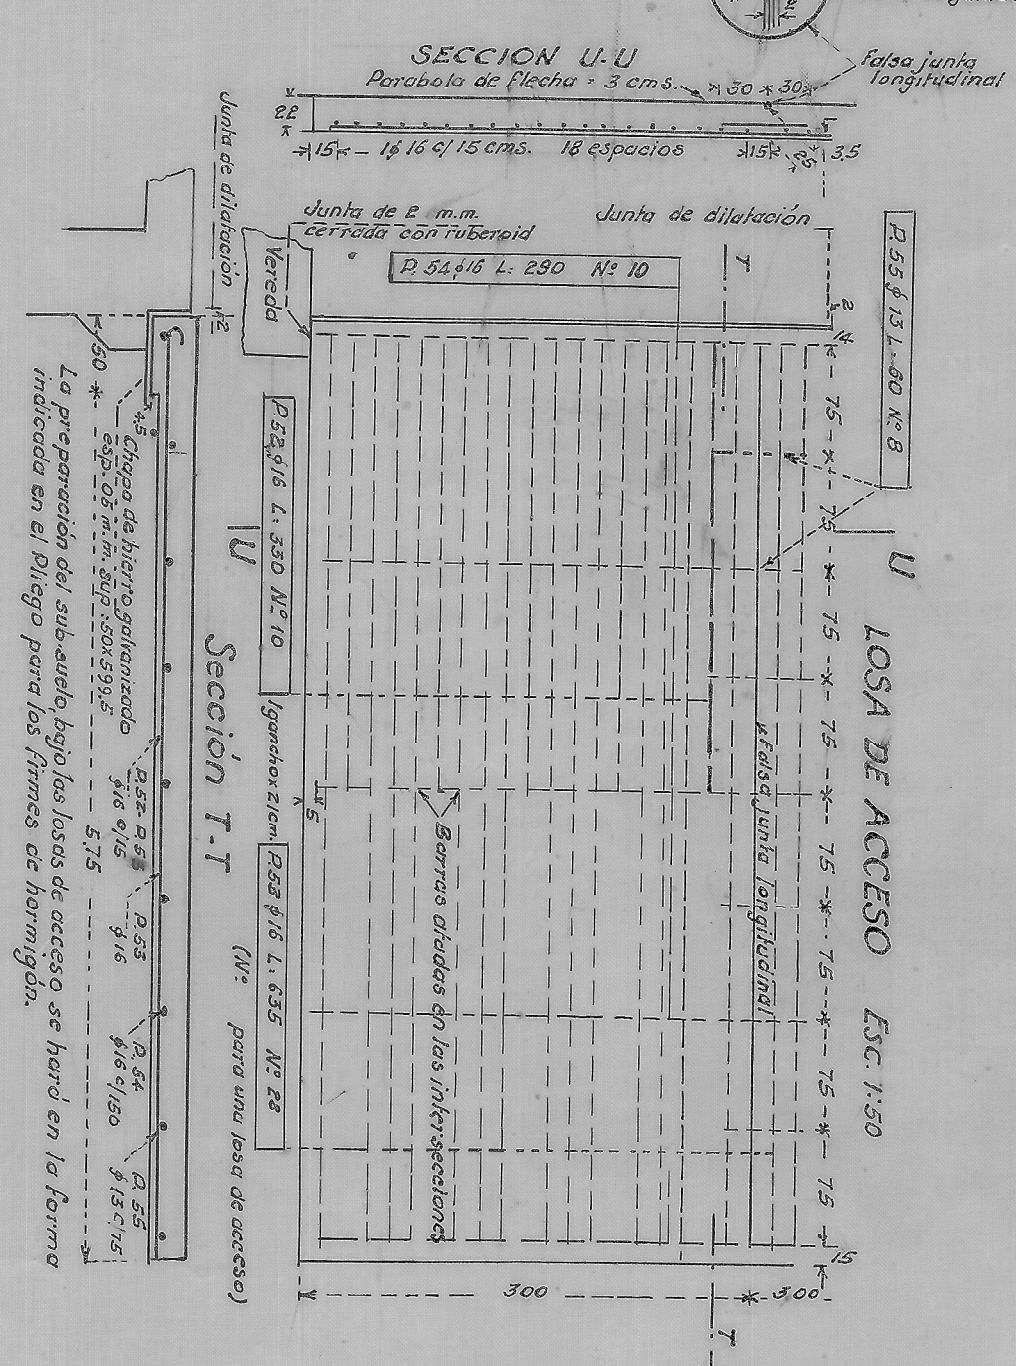 SECCION U-U
Parabola de flecha = 3 cms.
30 30
Falsa junta
longitudinal
22
15 1ɸ16 c/15 cms. 18 espacios
15
25
3.5
Junta de dilatación
Junta de 2 m.m.
cerrada con ruberoid
Junta de dilatación
P. 54 ɸ16 L: 290 Nº 10
T
P. 55 ɸ 13 L= 60 Nº 8
Vereda
2
2
14
75
75
75
75
75
75
75
75
15
U
LOSA DE ACCESO Esc. 1:50
Falsa junta longitudinal
Barras atadas en las intersecciones
5
P.52 ɸ16 L: 330 Nº 10
1gancho x 21cm.
P.53 ɸ16 L: 635 Nº 28
U
Sección T-T
(Nº para una losa de acceso)
50
4.5
Chapa de hierro galvanizado
esp. 05 m.m. sup: 50x599.5
P.52-P.53
ɸ16 c/15
P.53
ɸ16
P.54
ɸ16 c/150
P.55
ɸ13 c/75
5.75
La preparación del sub-suelo, bajo las losas de acceso se hará en la forma
indicada en el Pliego para los firmes de hormigón.
300
300
T